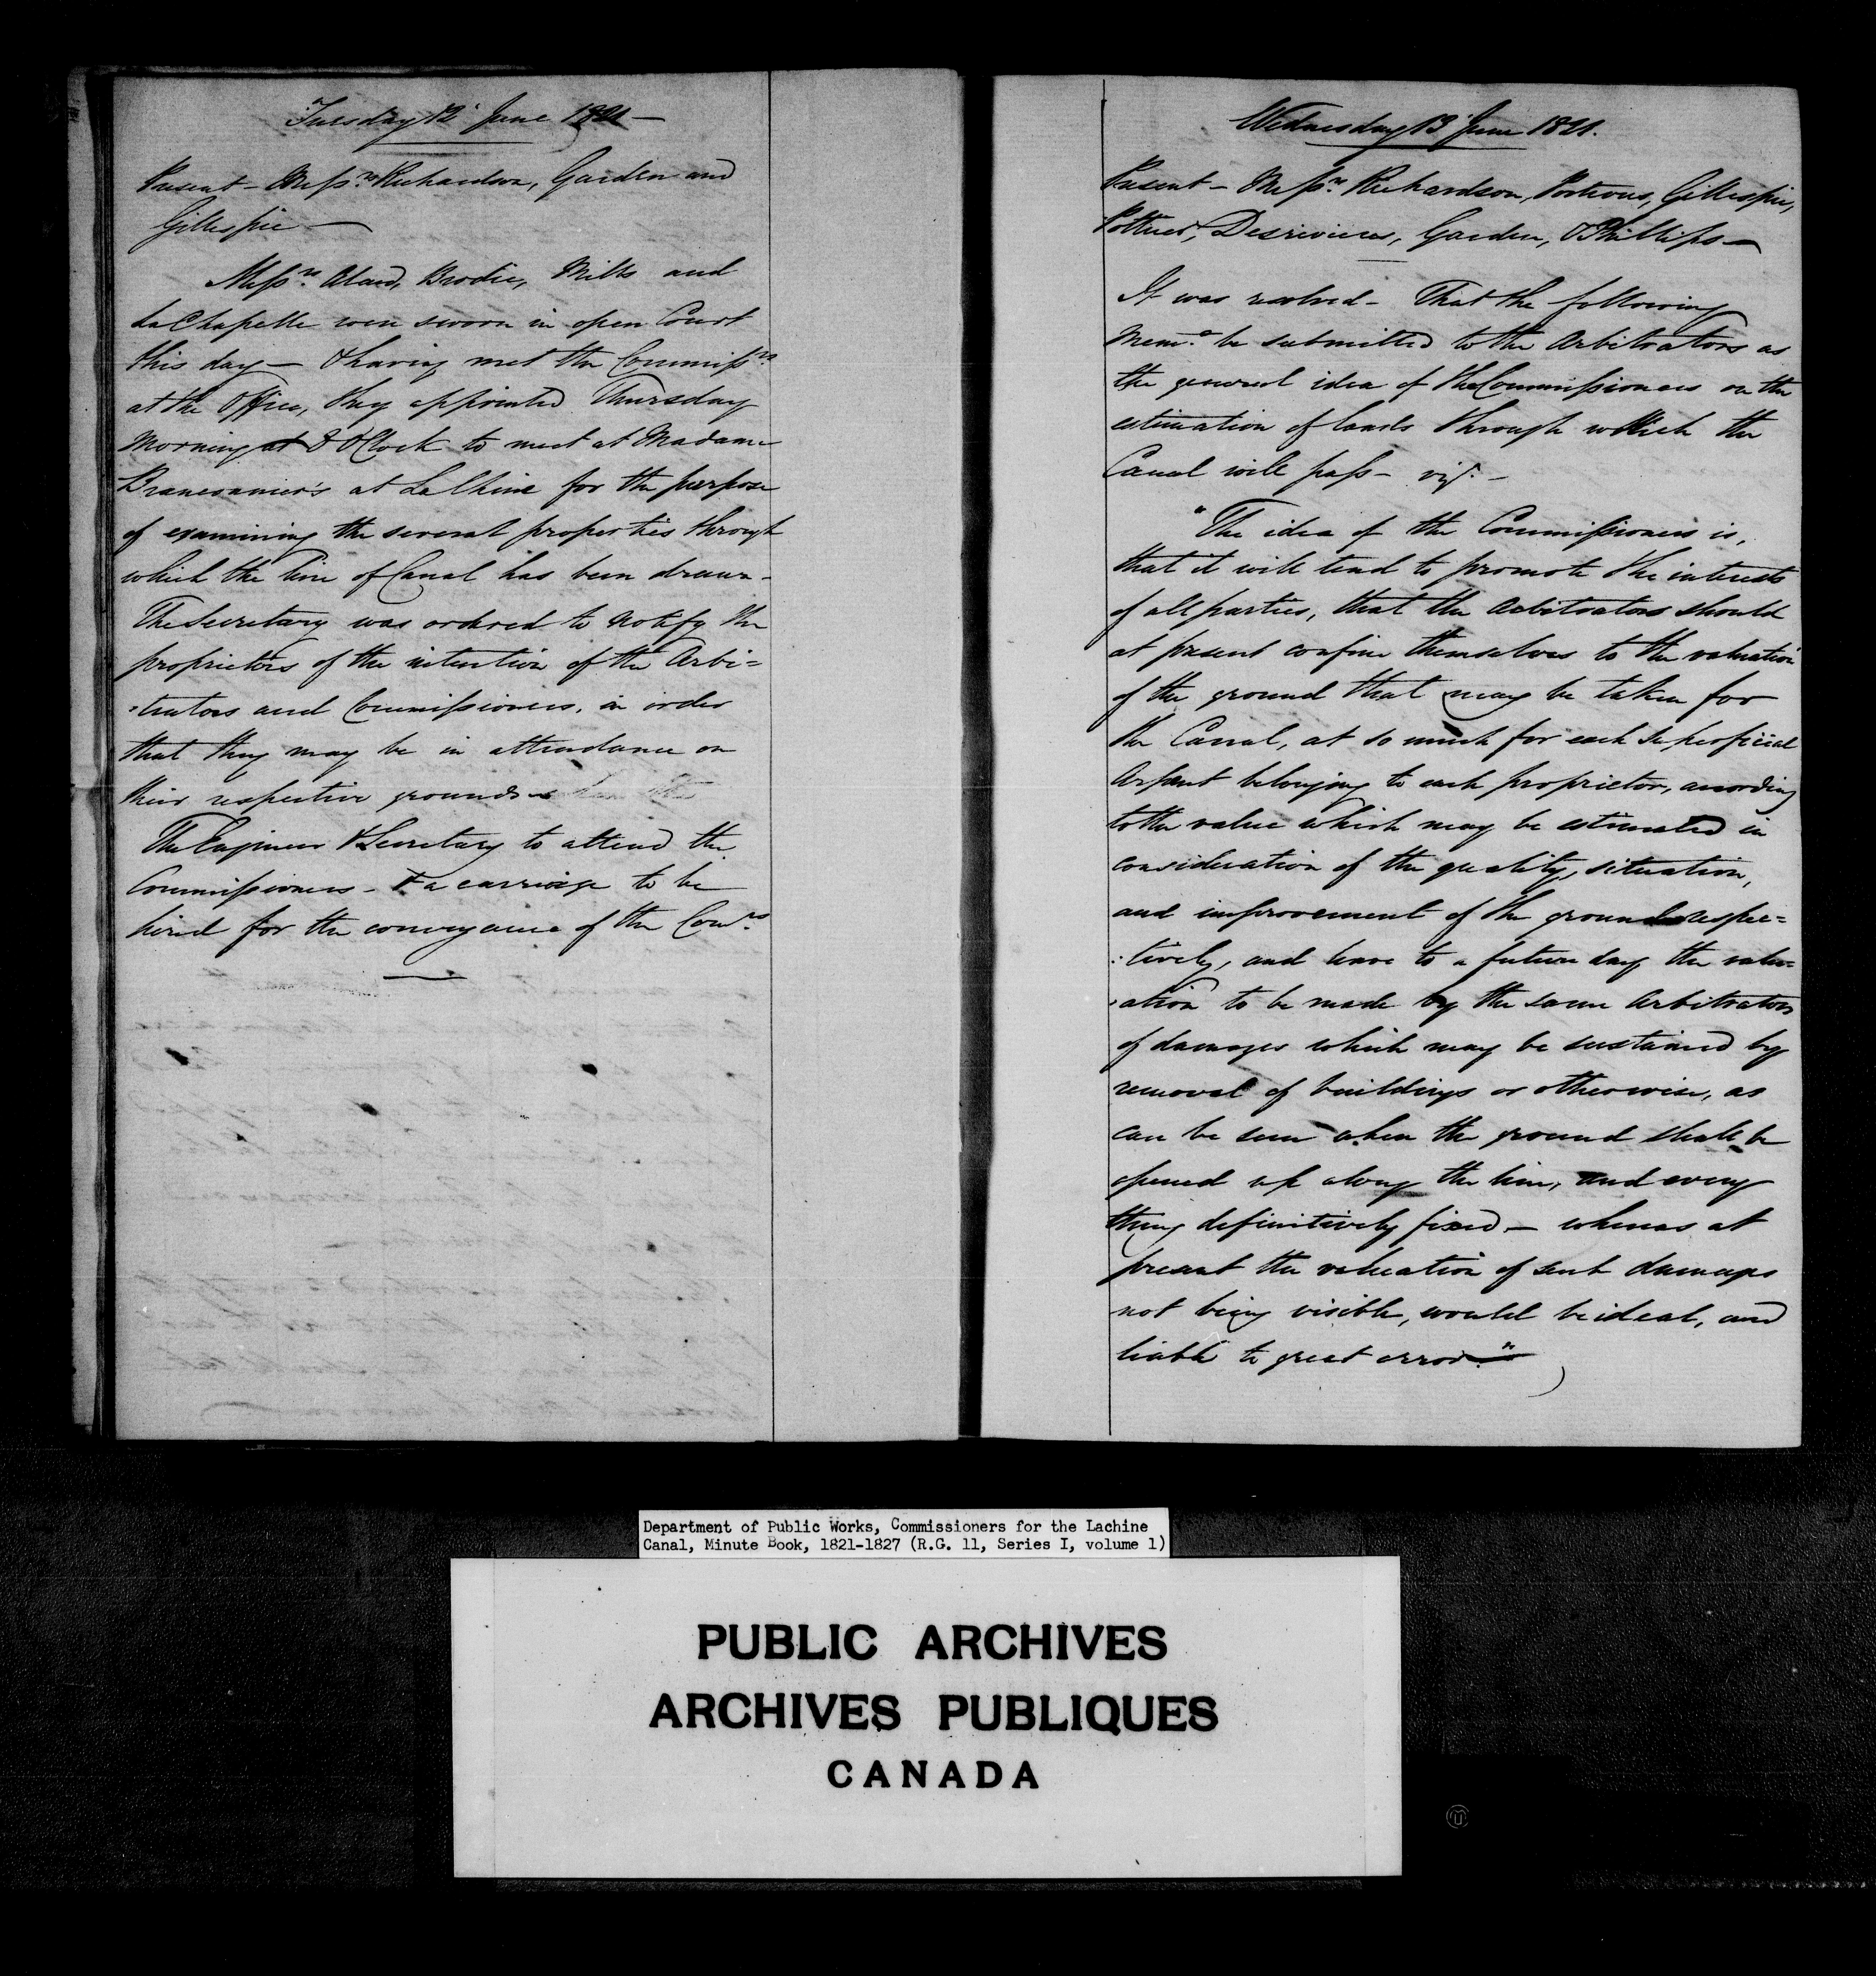 Tuesday 12 June 1821 —
Present — Messrs Richardson, Garden and
Gillespie —
Messrs Brodie, Mills and
La Chapelle were sworn in open Court
this day — & having met the Commissrs
at the Office, they appointed Thursday
Morning at 8 O'Clock to meet at Madame
at La Chine for the purpose
of examining the several properties through
which the line of Canal has been drawn —
The Secretary was ordered to notify the
proprietors of the intention of the Arbi=
=trators and Commissioners, in order
that they may be in attendance on
their respective grounds —
The Engineer & Secretary to attend the
Commissioners — & a carriage to be
hired for the conveyance of the Comrs
Wednesday 13 June 1821.
Present — Messrs Richardson, Porteous, Gillespie,
Desrivieres, Garden, & Phillips —
It was resolved — That the following
Memo be submitted to the Arbitrators as
the general idea of the Commissioners on the
estimation of lands through which the
Canal will pass — viz. —
"The idea of the Commissioners is,
that it will tend to promote the interests
of all parties, that the Arbitrators should
at present confine themselves to the valuation
of the ground that may be taken for
the Canal, at so much for each superficial
Arpent belonging to each proprietor, according
to the value which may be estimated in
consideration of the quality, situation,
and improvement of the ground respec=
=tively, and leave to a future day the valu=
=ation to be made by the same Arbitrators
of damages which may be sustained by
removal of buildings or otherwise, as
can be seen when the ground shall be
opened up along the line, and every
thing definitively fixed — whereas at
present the valuation of such damages
not being visible, would be ideal, and
liable to great error."
Department of Public Works, Commissioners for the Lachine
Canal, Minute Book, 1821-1827 (R.G. 11, Series I, volume 1)
PUBLIC ARCHIVES
ARCHIVES PUBLIQUES
CANADA